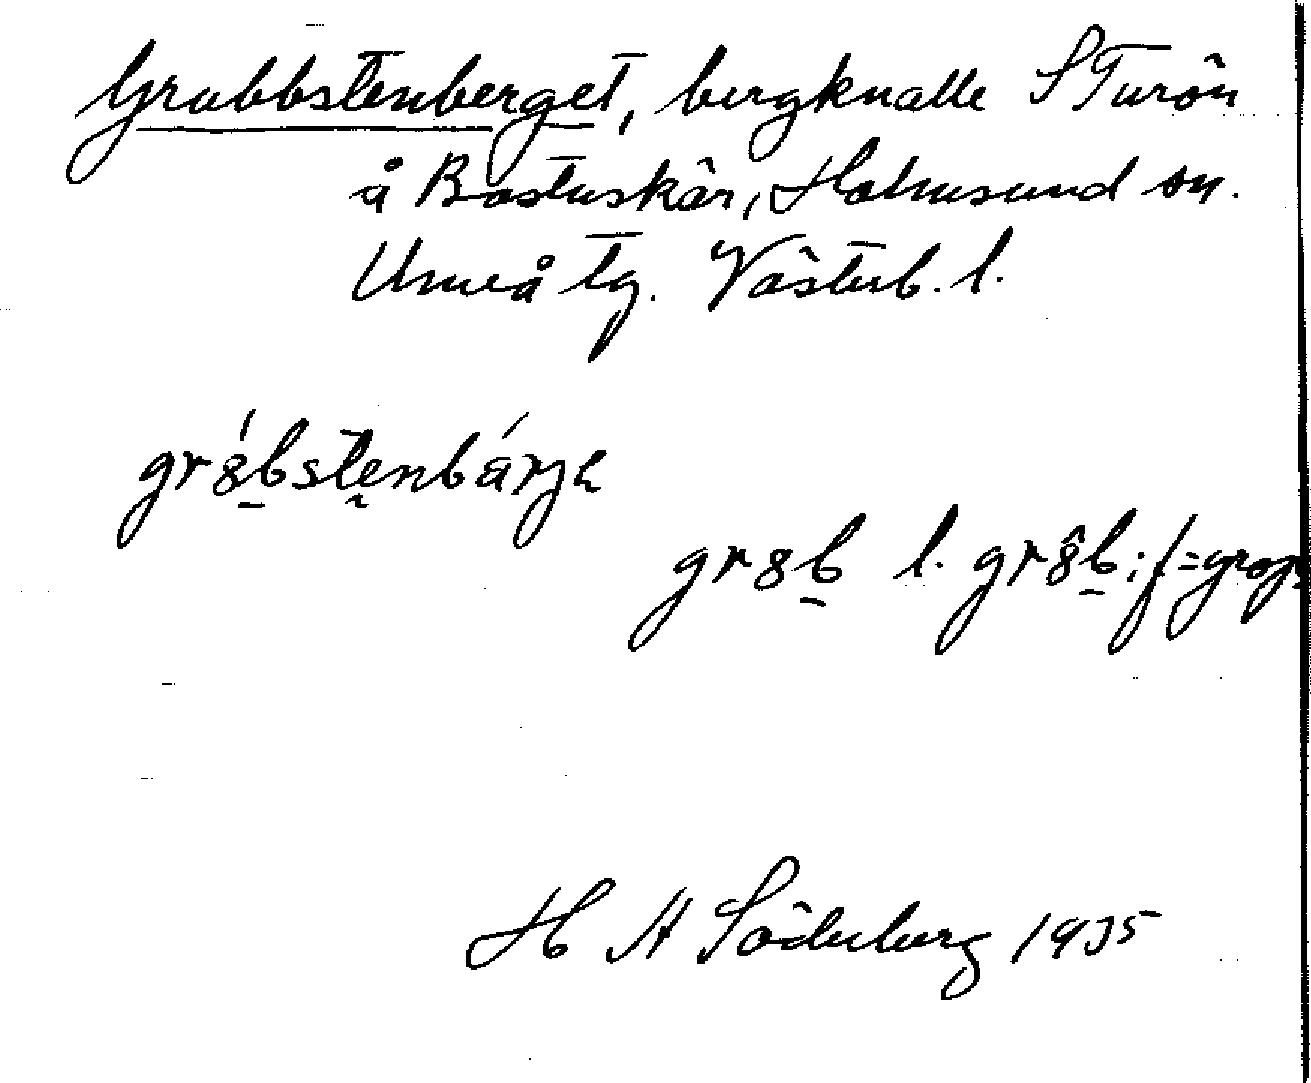 Grubbstenberget, bergknalle S Turön
å Bastuskär, Holmsund sn.
Umeå tg. Västerb. l.
gr8́bstenbárjɂ
gr8b l. gr8̂b; f = grop
H A Söderberg 1935